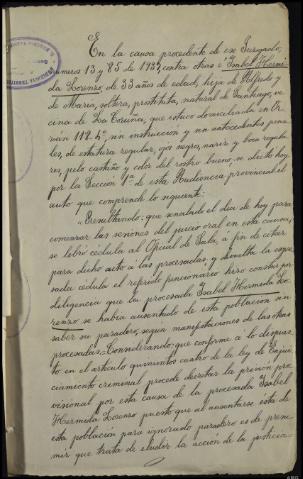 En la causa procedente de ese Juzgado,
números 13 y 85 de 1927, contra otras e Isabel Hermi
da Lorenzo, de 33 años de edad, hija de Alfredo y
de María, soltera, prostituta, natural de Santiago, ve
cina de La Coruña, que estuvo domiciliada en Or
zán 112-4º, sin instrucción y sin antecedentes pena
les, de estatura regular, ojos negros, nariz y boca regula
res, pelo castaño y color del rostro bueno, se dictó hoy
por la Sección 1ª de esta Audiencia provincial el
auto que comprende lo siguiente:
"Resultando: que señalado el día de hoy para
comenzar las sesiones del juicio oral en esta causa,
se libró cédula al Oficial de Sala, a fin de citar
para dicho acto á las procesadas, y devuelta la expre
sada cédula el referido funcionario hizo constar por
diligencia que la procesada Isabel Hermida Lo
renzo se había ausentado de esta población sin
saber su paradero, según manifestaciones de las otras
procesadas.= Considerando: que conforme á lo dispues
to en el artículo quinientos cuatro de la ley de Enjui
ciamiento criminal procede decretar la prisión pro
visional por esta causa de la procesada Isabel
Hermida Lorenzo puesto que al ausentarse esta de
esta población para ignorado paradero es de presu
mir que trata de eludir la acción de la justicia